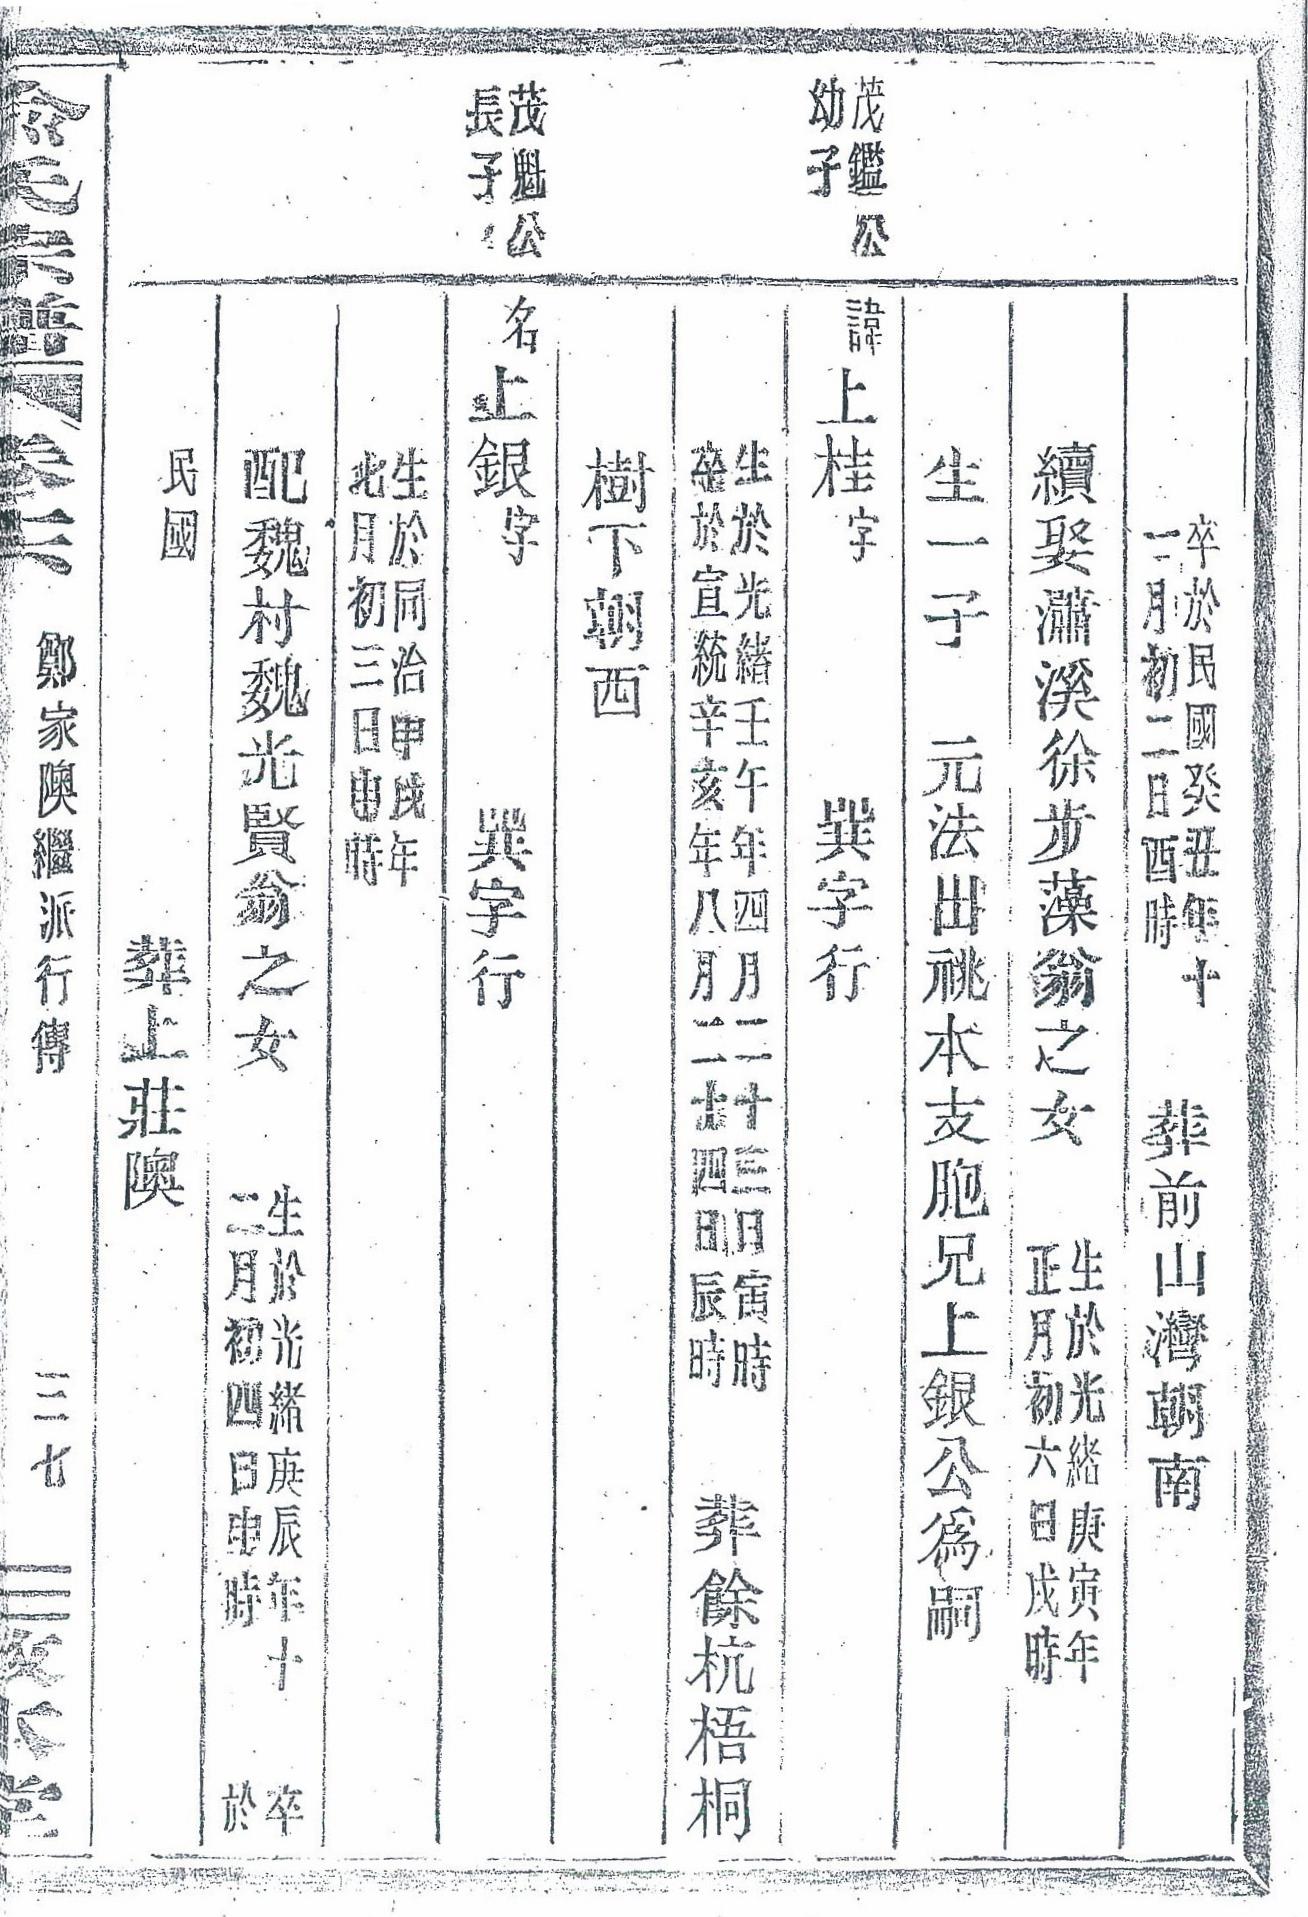 卒於民國癸丑年十
二月初二日酉時
葬前山灣朝南
續娶瀟溪徐步藻翁之女
生於光緒庚寅年
正月初六日戌時
生一子 元法出祧本支胞兄上銀公爲嗣
茂鑑公
幼子
諱上桂字 巽字行
生於光緒壬午年四月二十三日寅時
卒於宣統辛亥年八月二十四日辰時
葬餘杭梧桐
樹下朝西
茂魁公
長子
名上銀字 巽字行
生於同治甲戌年
北月初三日申時
配魏村魏光賢翁之女
生於光緒庚辰年十 卒
二月初四日申時 於
民國
葬上莊隩
俞氏宗譜 卷二 鄭家隩繼派行傳 三七 三毀本堂